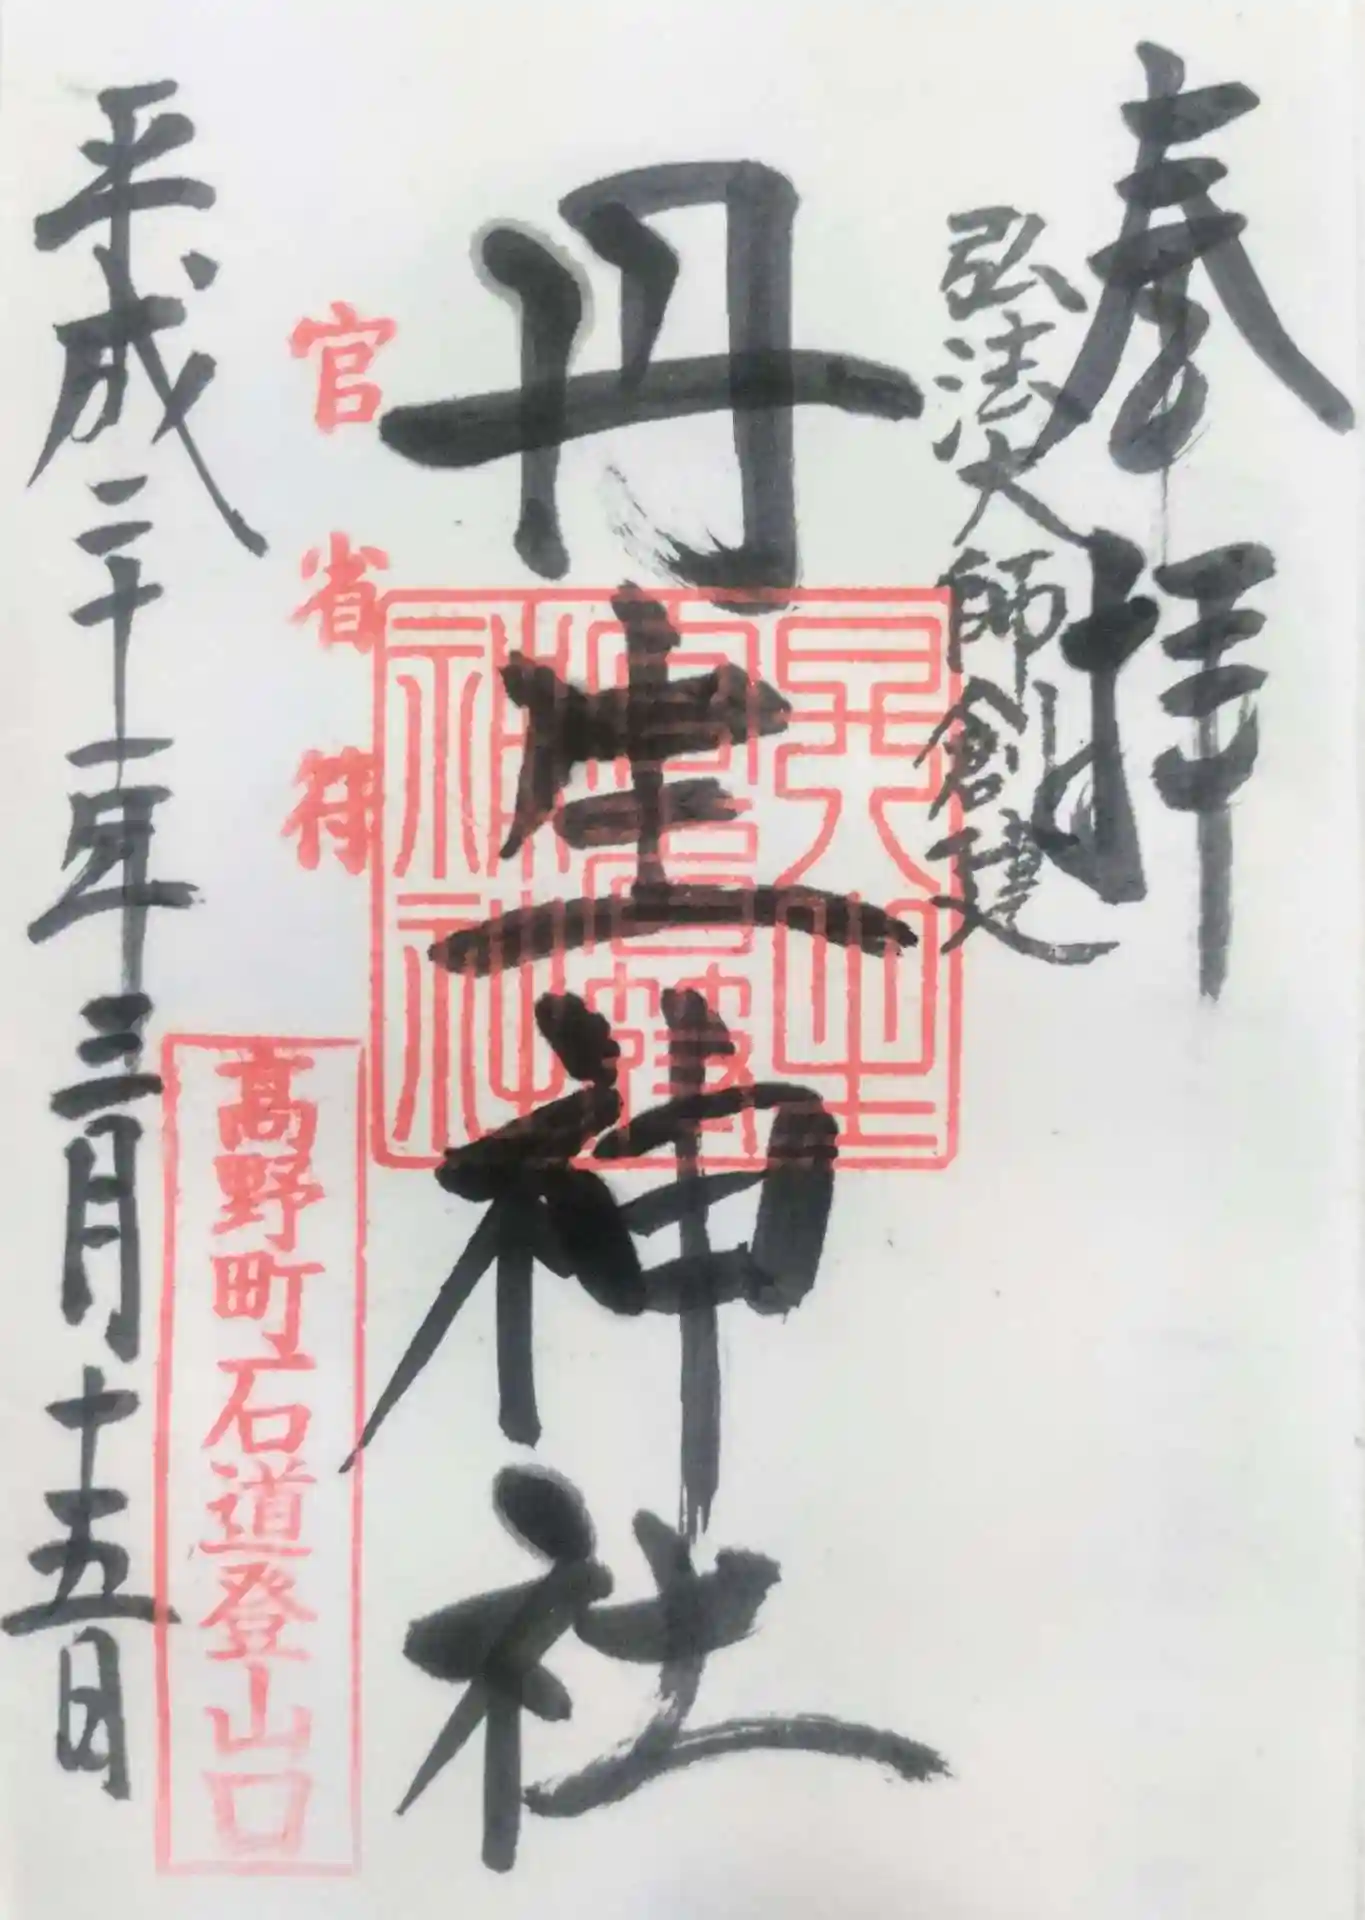 奉拝
弘法大師創建
丹生神社
官省符
高野町石道登山口
平成二十一年三月十五日